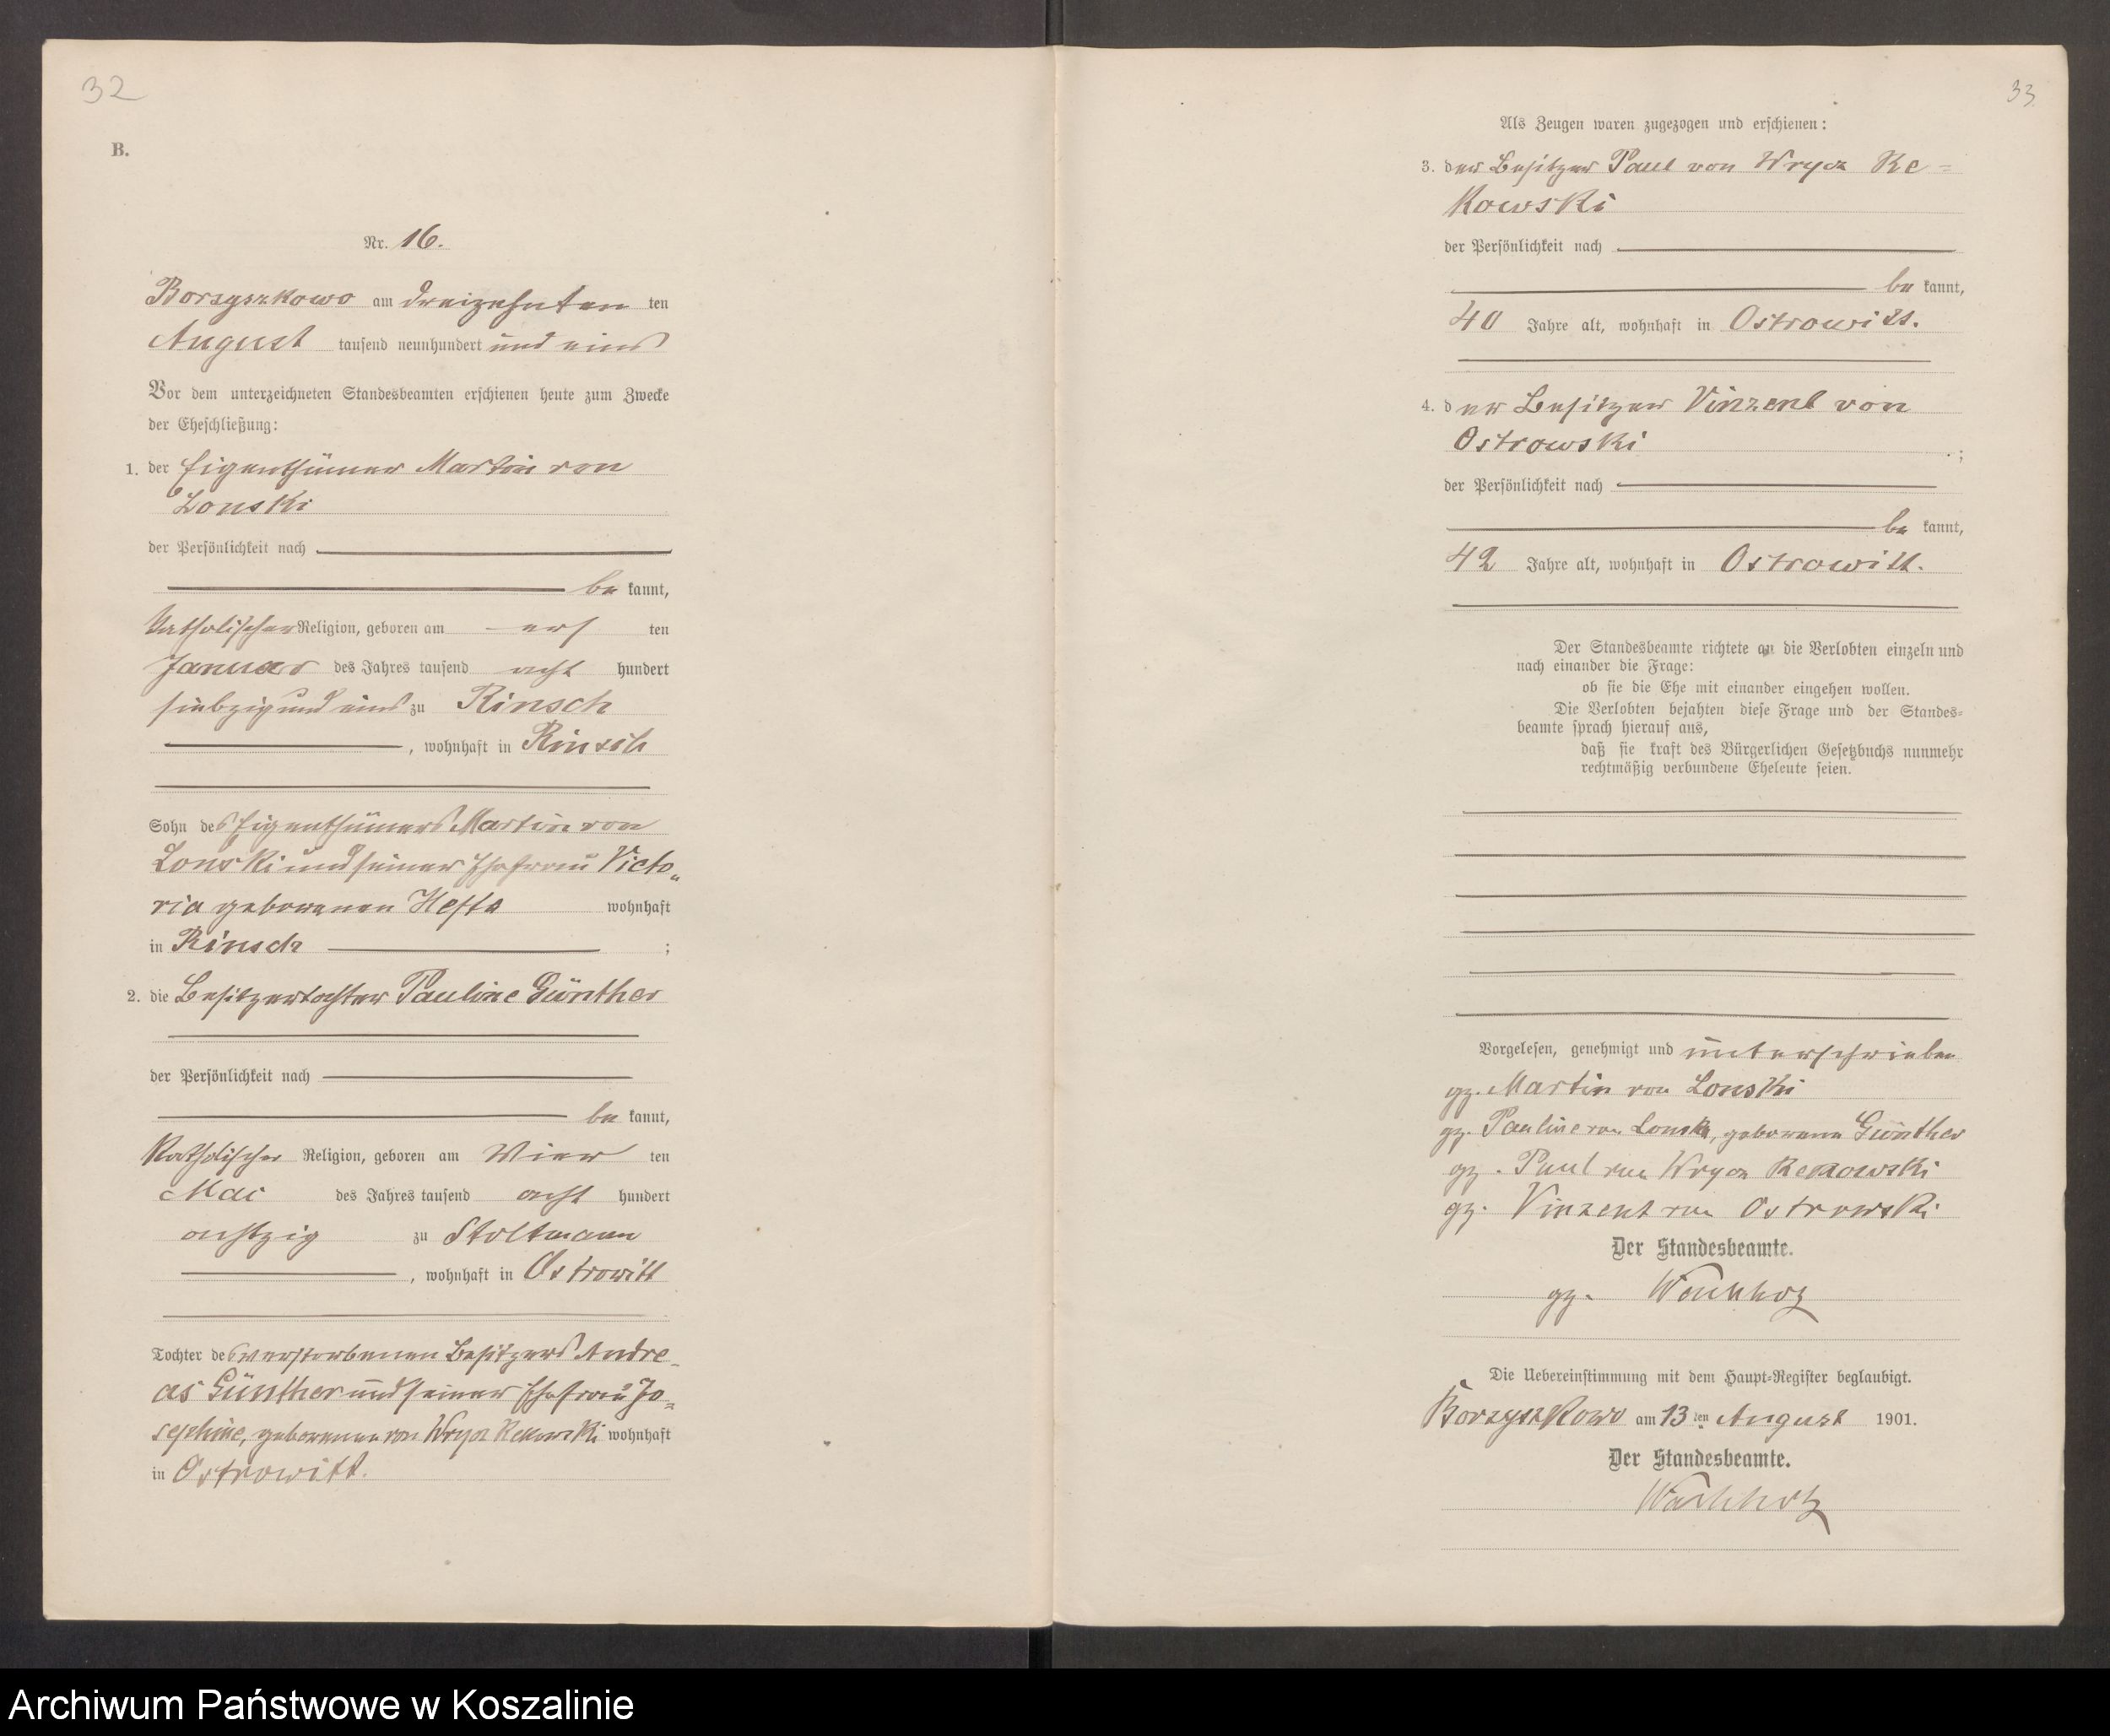 32
B.
Nr. 16.
Borzyszkowo am dreizehnten ten
August tausend neunhundert und eins
Vor dem unterzeichneten Standesbeamten erschienen heute zum Zwecke
der Eheschließung:
1. der Eigenthümer Martin von
Lonski
der Persönlichkeit nach
be kannt,
katholischer Religion, geboren am ers ten
Januar des Jahres tausend acht hundert
siebzig und eins zu Rinsch
, wohnhaft in Rinsch
Sohn des Eigenthümers Martin von
Lonski und seiner Ehefrau Victo„
ria geborenen Hefta wohnhaft
in Rinsch ;
2. die Besitzertochter Pauline Günther
der Persönlichkeit nach
be kannt,
katholischer Religion, geboren am vier ten
Mai des Jahres tausend acht hundert
achtzig zu Stoltmann
, wohnhaft in Ostrowitt
Tochter des verstorbenen Besitzers Andre-
as Günther und seiner Ehefrau Jo=
sephine, geborenen von Wrycz Rekowski wohnhaft
in Ostrowitt.
33
Als Zeugen waren zugezogen und erschienen:
3. der Besitzer Paul von Wrycz Re=
kowski
der Persönlichkeit nach
be kannt,
40 Jahre alt, wohnhaft in Ostrowitt.
4. der Besitzer Vinzent von
Ostrowski ;
der Persönlichkeit nach
be kannt,
42 Jahre alt, wohnhaft in Ostrowitt.
Der Standesbeamte richtete an die Verlobten einzeln und
nach einander die Frage:
ob sie die Ehe mit einander eingehen wollen.
Die Verlobten bejahten diese Frage und der Standes=
beamte sprach hierauf aus,
daß sie kraft des Bürgerlichen Gesetzbuchs nunmehr
rechtmäßig verbundene Eheleute seien.
Vorgelesen, genehmigt und unterschrieben
gz. Martin von Lonski
gz. Pauline von Lonski, geborene Günther
gz. Paul von Wrycz Rekowski
gz. Vinzent von Ostrowski
Der Standesbeamte.
gz.
Die Uebereinstimmung mit dem Haupt=Register beglaubigt.
Borzyszkowo am 13 ten August 1901.
Der Standesbeamte.
Archiwum Państwowe w Koszalinie